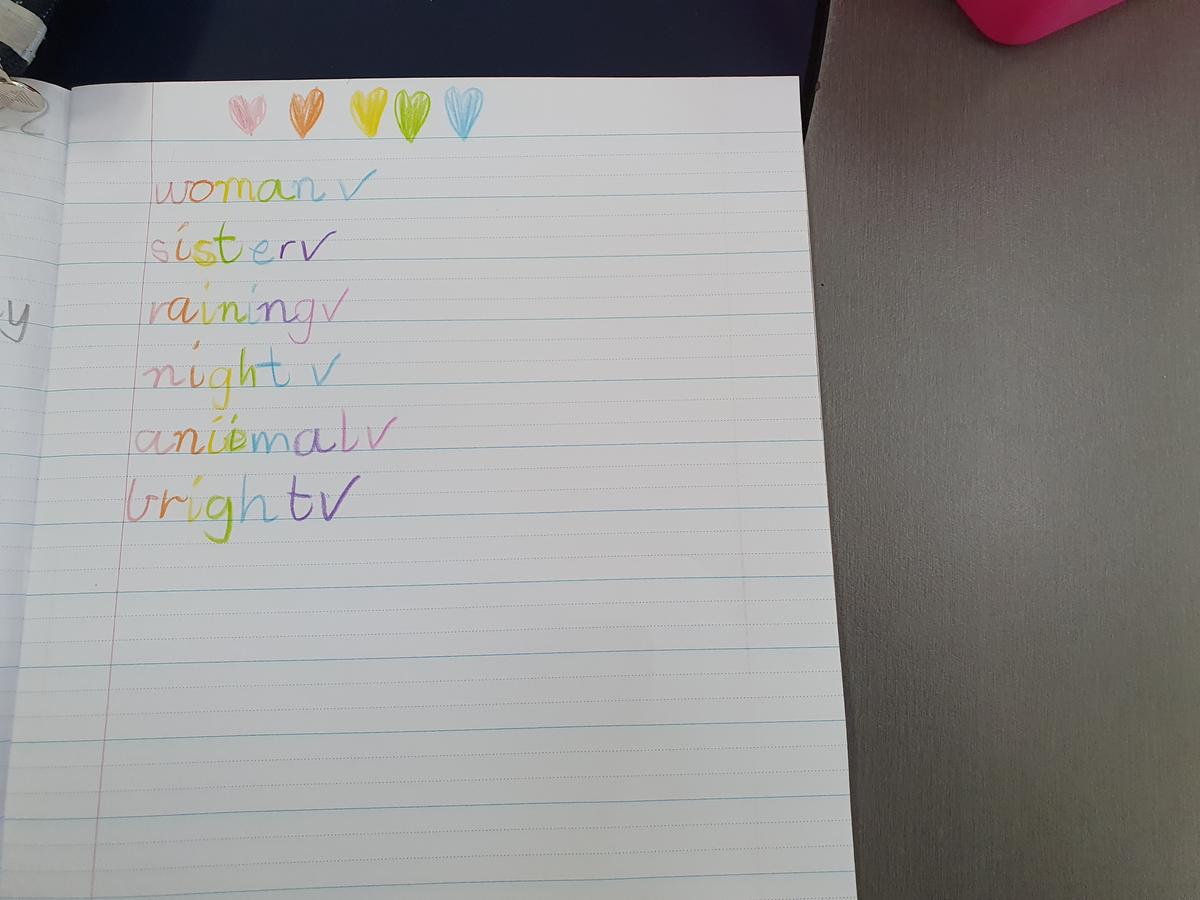 woman ✓
sister ✓
raining ✓
night ✓
aniimal ✓
bright ✓
y